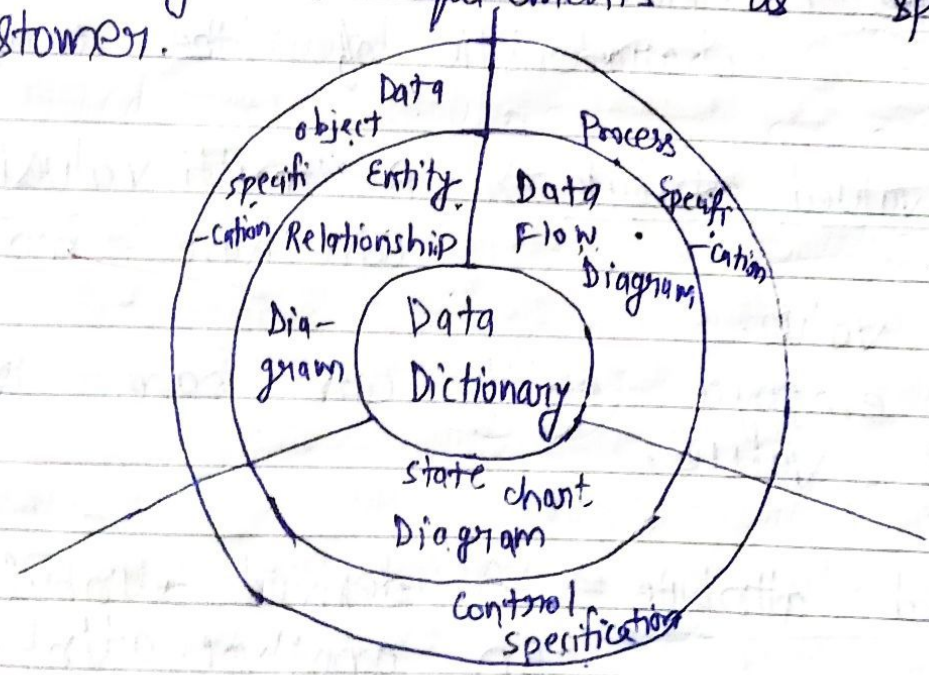 as
stomer.
Data
object
specifi
-cation
Process
Specifi
-cation
Entity
Relationship
Dia-
gram
Data
Flow
Diagram
Data
Dictionary
state chart
Diagram
Control
specification